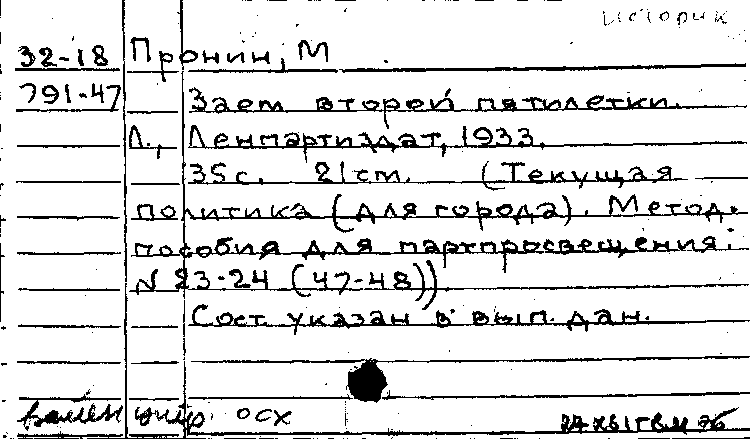 Историк
32-18 Пронин, М
791-47 Заем второй пятилетки.
Л., Ленпартиздат, 1933.
35с. 21cm. (Текущая
политика (для города). Метод.
пособия для партпросвещения.
N 23-24 (47-48)).
Сост. указан в вып. дан.
осх